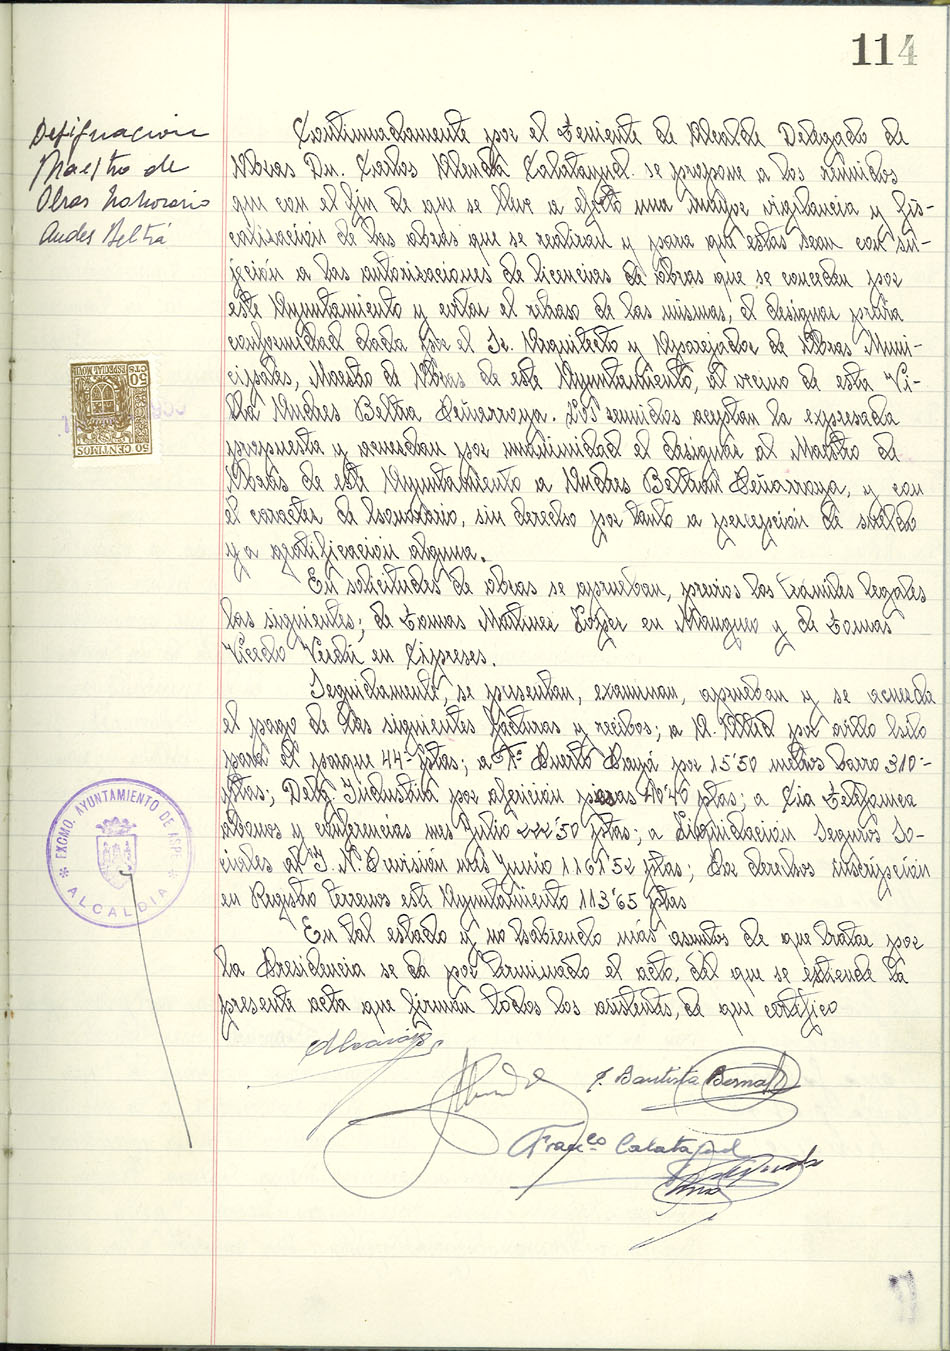 114
Designación
Maestro de
Obras Honorario
Andres Beltrá
Continuadamente por el Teniente de Alcalde Delegado de
Obras Dn. Carlos Alenda Calatayud se propone a los reunidos
que con el fin de que se lleve a efecto una mayor vigilancia y fis-
calización de las obras que se realizan y para que estas sean con su-
jeción a las autorizaciones de licencias de obras que se conceden por
este Ayuntamiento y evitar el retraso de las mismas, el designar previa
conformidad dada por el Sr. Arquitecto y Aparejador de Obras Muni-
cipales, Maestro de Obras de este Ayuntamiento, al vecino de esta Vi-
lla Andres Beltrá Peñarroya. Los reunidos aceptan la expresada
propuesta y acuerdan por unanimidad el designar al Maestro de
Obras de este Ayuntamiento a Andres Beltran Peñarroya, y con
el caracter de honorario, sin derecho por tanto a percepción de sueldo
y a gratificacion alguna.
En solicitudes de obras se aprueban, previos los trámites legales
las siguientes; de Tomas Martinez in Alanguo y de Tomas
Vicedo Verdú en Cipreses.
Seguidamente, se presentan, examinan, aprueban y se acuerda
el pago de las siguientes facturas y recibos; a por hilo
para el parque 44- ptas; a Puerto por 15'50 metros barro 310'-
ptas; Delg. Industria por afeción pesas 40'40 ptas; a Cia Telefonica
abonos y conferencias mes Julio 222'50 ptas; a Liquidación Seguros So-
ciales al I. N. Previsión mes Junio 1161'52 ptas; Por derechos inscripción
en Registro terrenos este Ayuntamiento 113'65 ptas
En tal estado y no habiendo más asuntos de que tratar por
la Presidencia se dá por terminado el acto, del que se extiende la
presente acta que firman todos los asistentes, de que certifico
J. Bautista Bernal
Franco Calatayud
50 CTS
ESPECIAL MOVIL
50 CENTIMOS
EXCMO. AYUNTAMIENTO DE ASPE
ALCALDIA